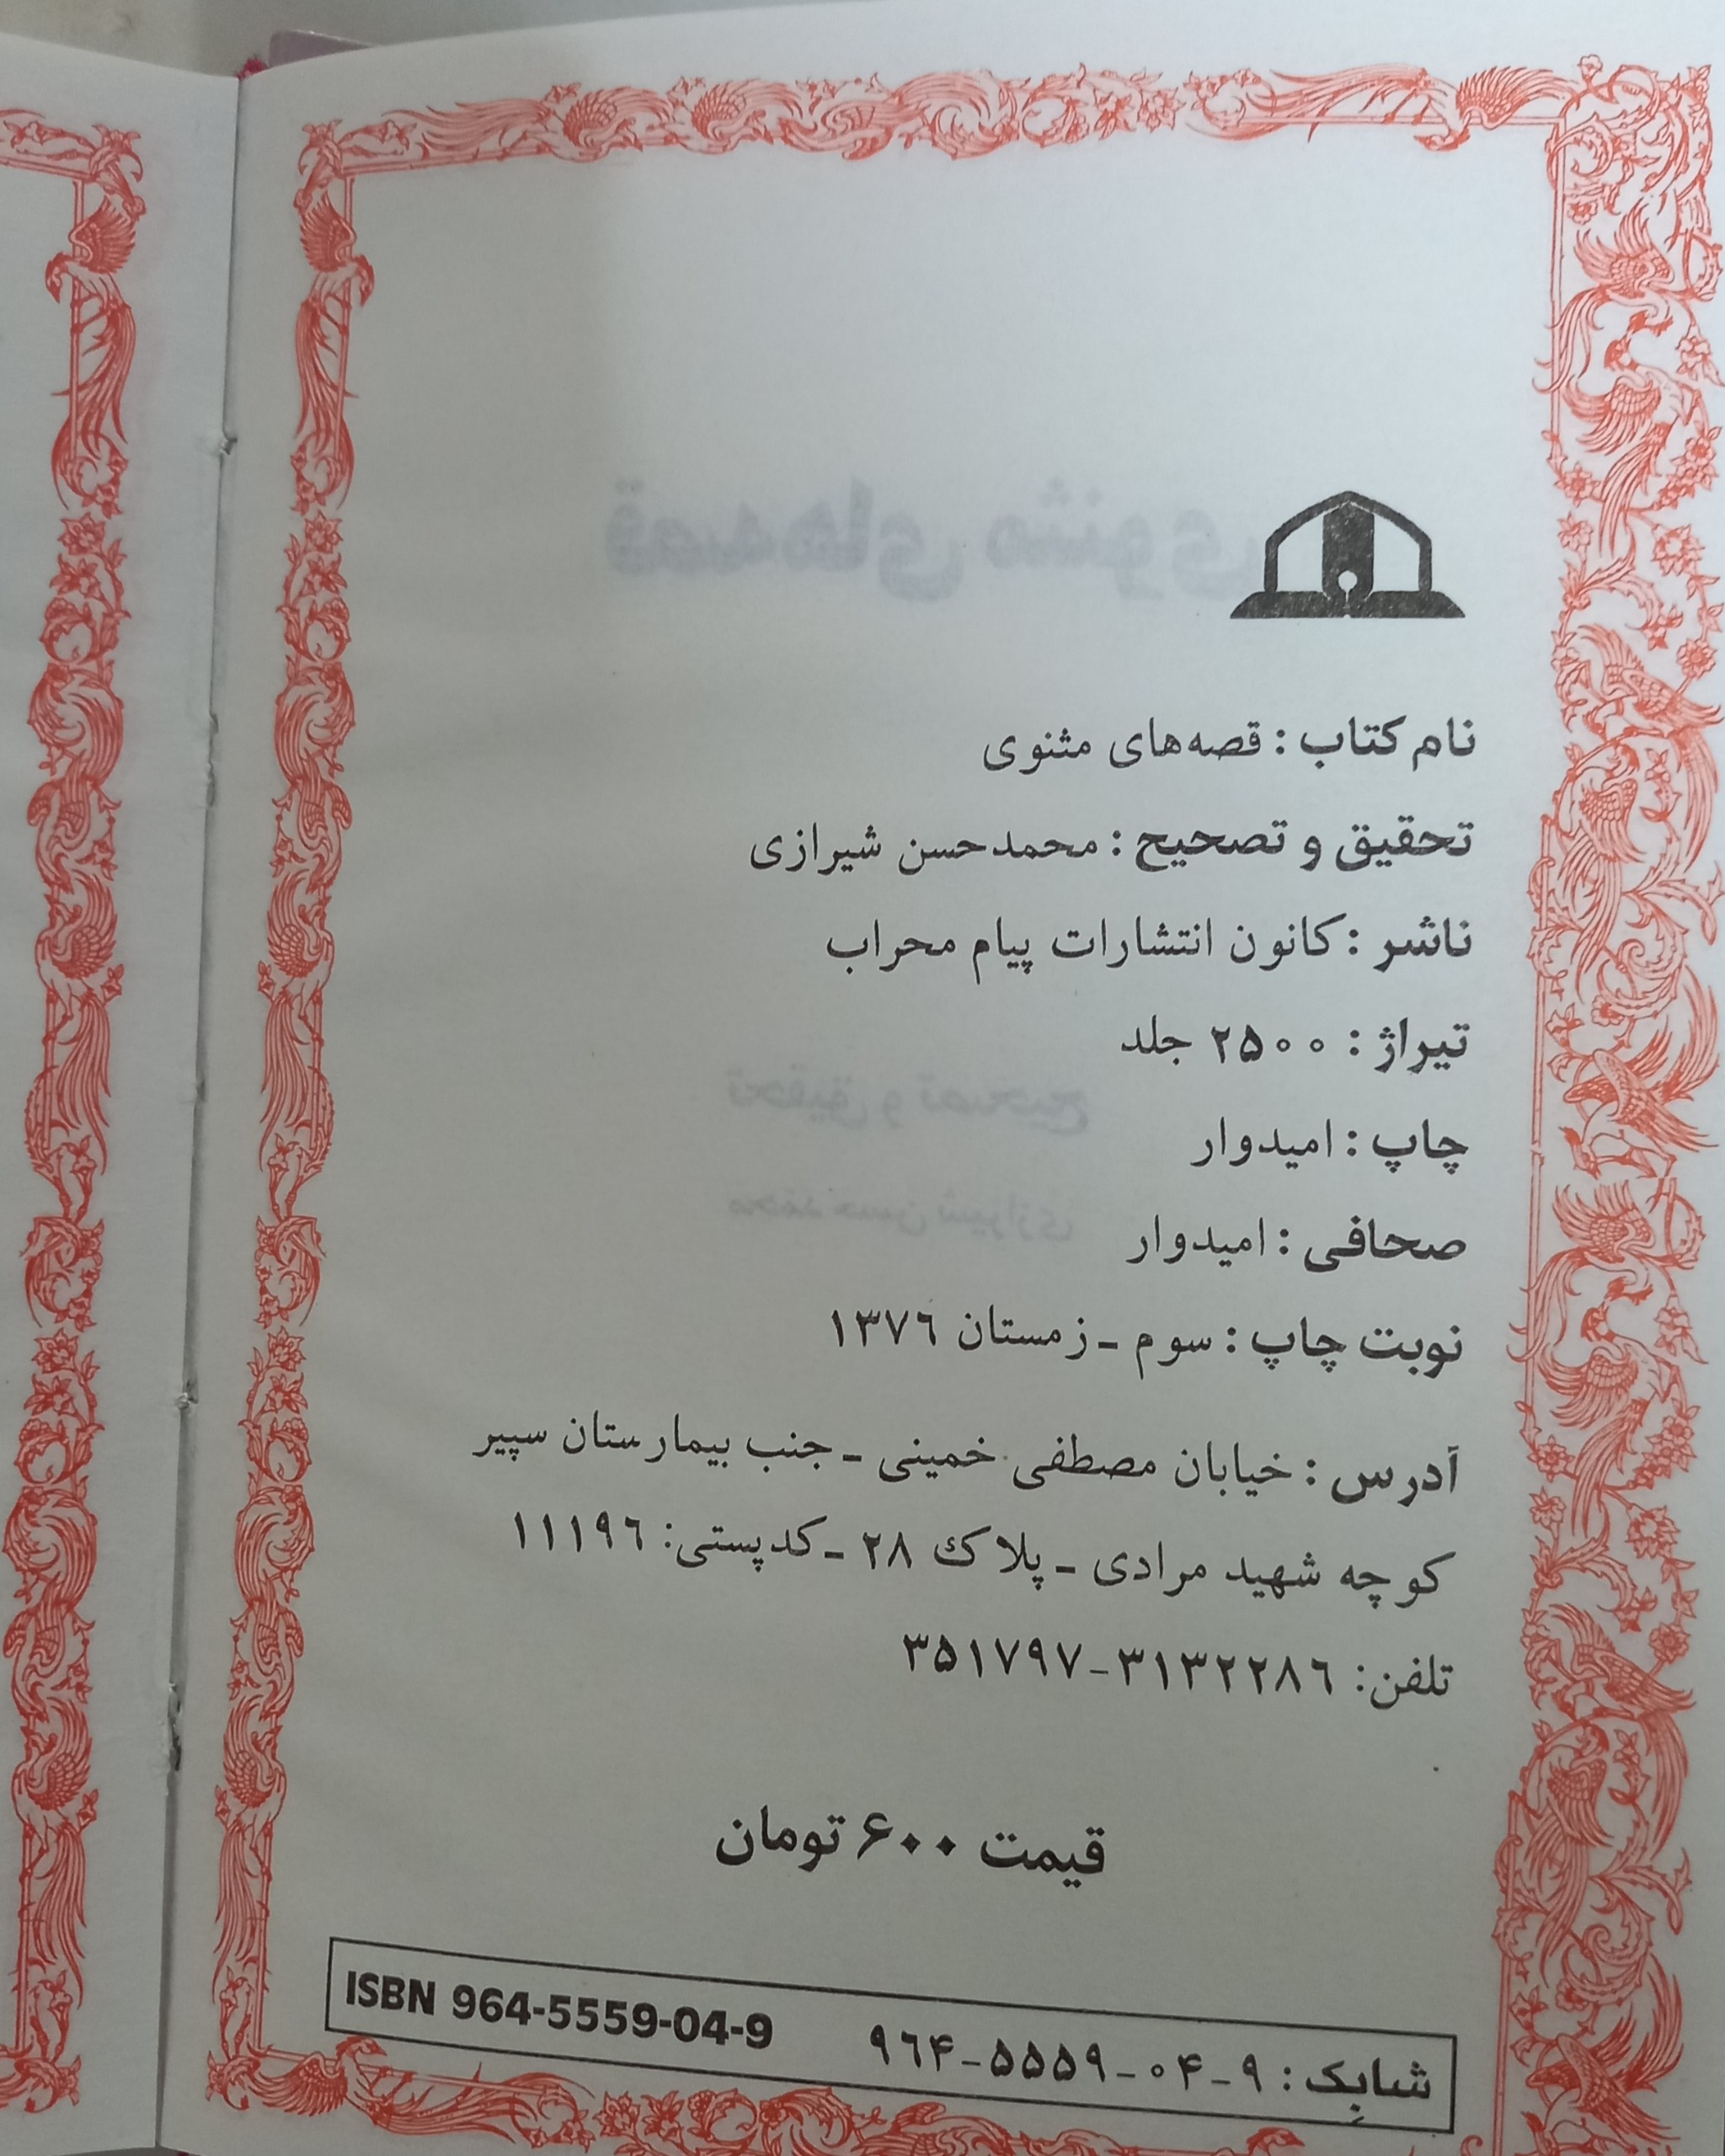 نام کتاب : قصه‌های مثنوی
تحقیق و تصحیح : محمدحسن شیرازی
ناشر : کانون انتشارات پیام محراب
تیراژ : ۲۵۰۰ جلد
چاپ : امیدوار
صحافی : امیدوار
نوبت چاپ : سوم ـ زمستان ۱۳۷٦
آدرس : خیابان مصطفی خمینی ـ جنب بیمارستان سپیر
کوچه شهید مرادی ـ پلاک ۲۸ ـ کدپستی: ۱۱۱۹٦
تلفن: ۳۱۳۲۲۸٦-۳۵۱۷۹۷
قیمت ۶۰۰ تومان
شابک : ۹-۰۴-۵۵۵۹-۹٦۴ ISBN 964-5559-04-9